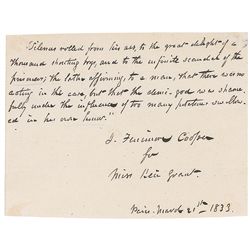 "Silenus rolled from his ass, to the great delight of a
thousand shouting boys, and to the infinite scandal of the
prisoner; the latter affirming, to a man, that there was no
acting in the case, but that the demi-god was shame-
fully under the influence of too many potations swallow-
ed in his own honor."
J. Fenimore Cooper
for
Miss Grant
March 21st 1833.